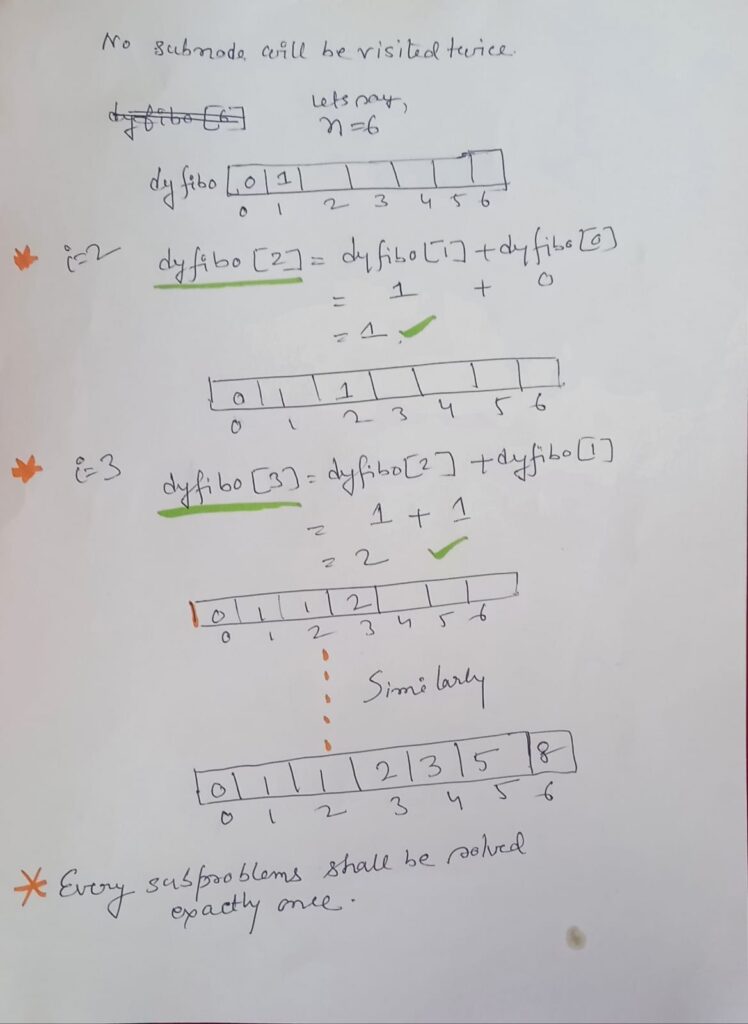 No subnode will be visited twice.
dyfibo [6]
Lets say,
n=6
dyfibo 0 1
0 1 2 3 4 5 6
i=2 dyfibo [2] = dyfibo[1] + dyfibo[0]
= 1 + 0
= 1.
0 1 1
0 1 2 3 4 5 6
i=3 dyfibo [3] = dyfibo[2] + dyfibo[1]
= 1 + 1
= 2
0 1 1 2
0 1 2 3 4 5 6
Similarly
0 1 1 2 3 5 8
0 1 2 3 4 5 6
* Every subproblems shall be solved
exactly once.